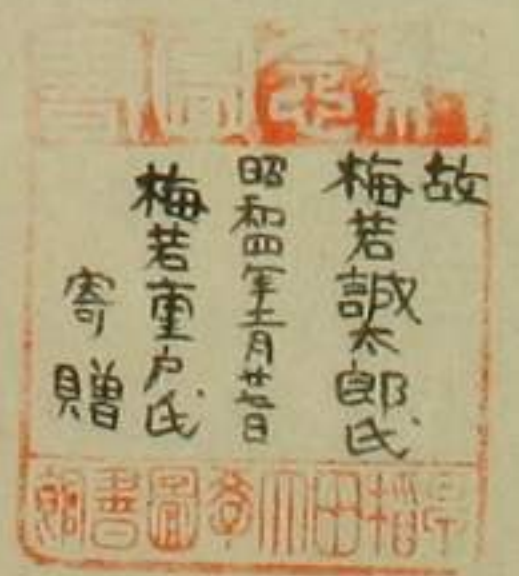 故
梅若誠太郎氏
昭和四年十二月廿七日
梅若重戸氏
寄贈
早稲田大學圖書館